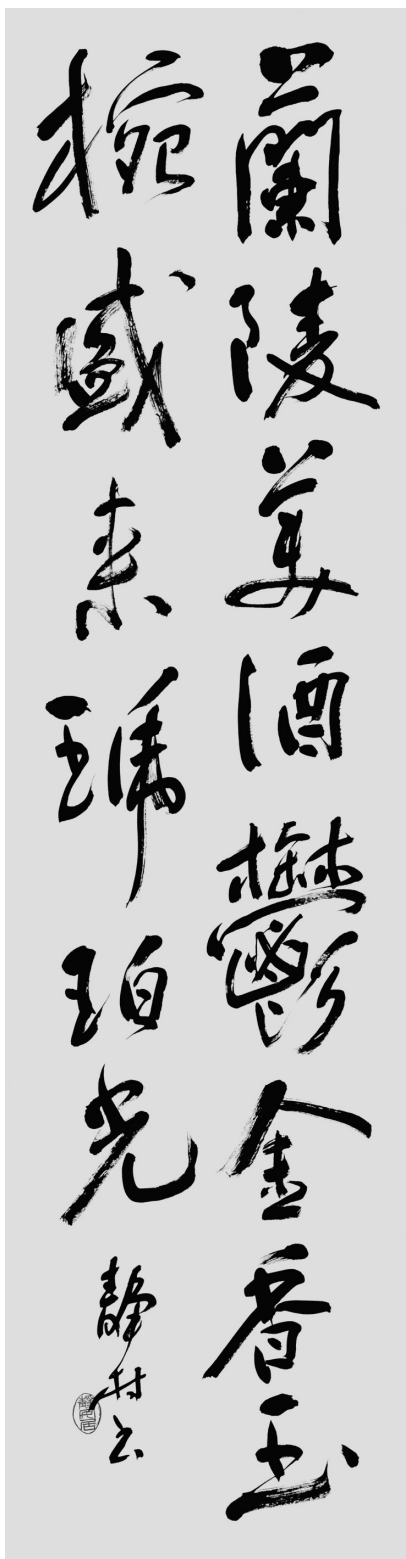 蘭陵美酒鬱金香玉
椀盛来琥珀光
静村书